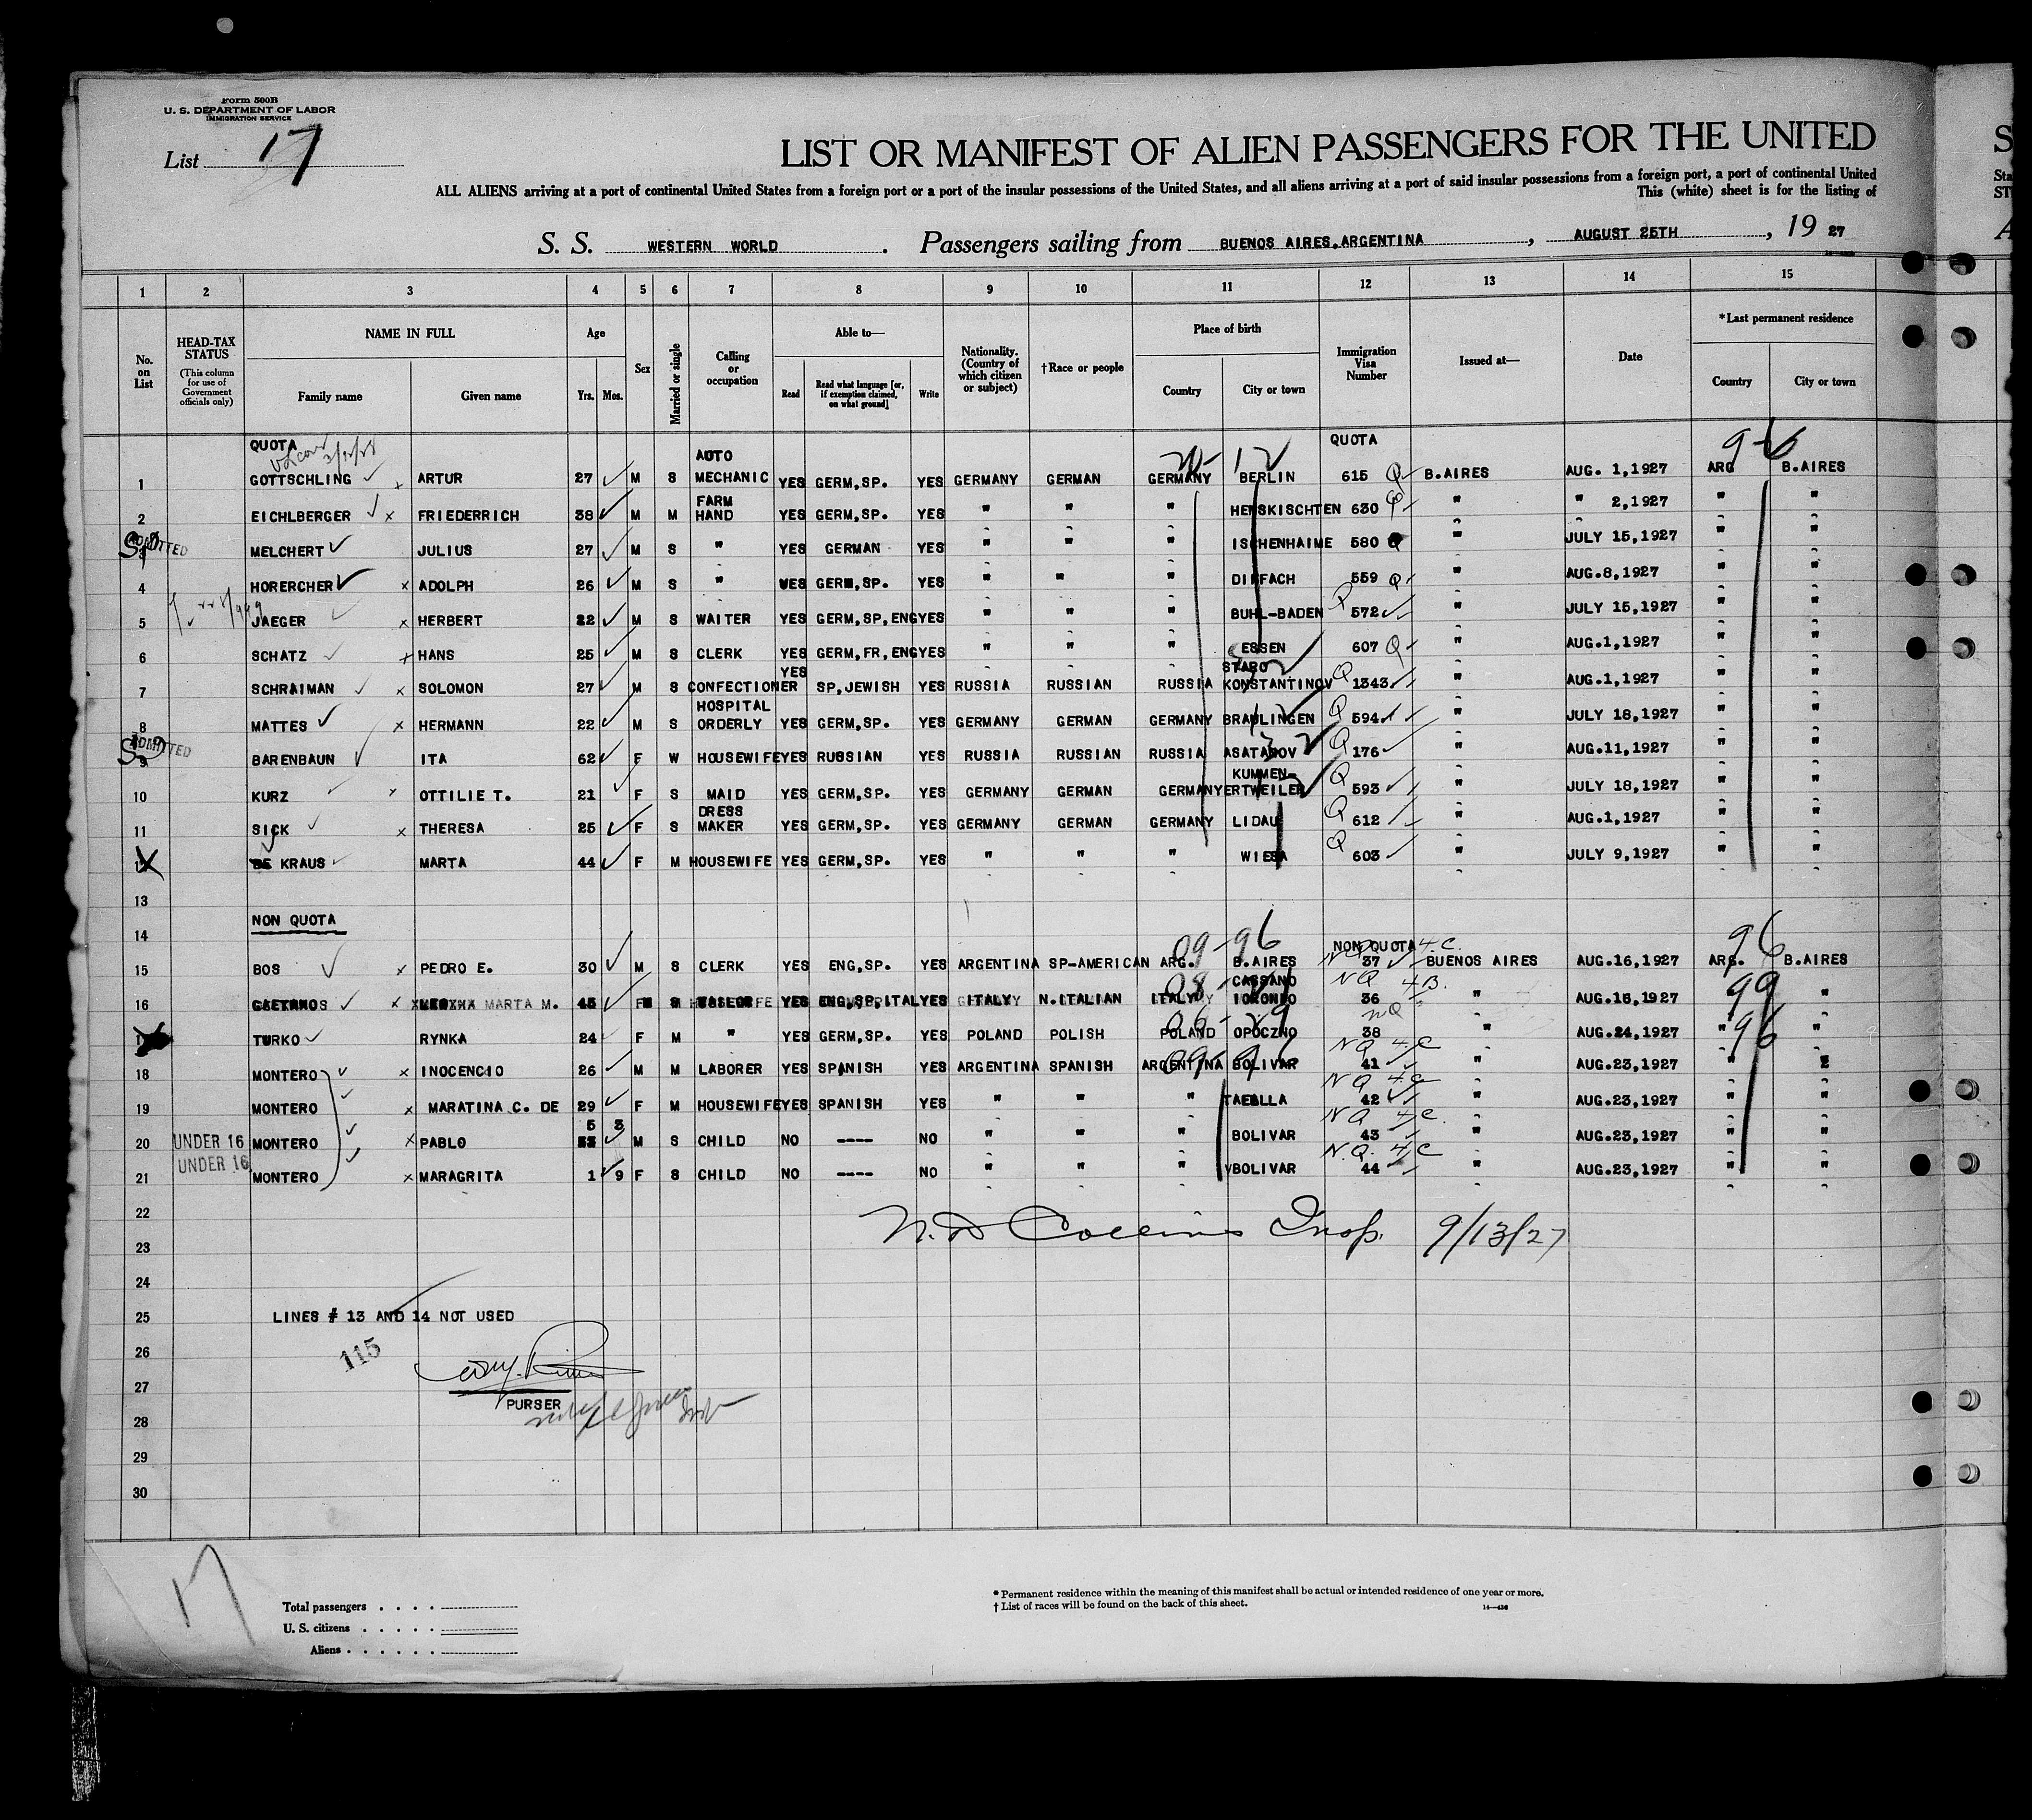 Form 500B
U. S. DEPARTMENT OF LABOR
IMMIGRATION SERVICE
List 17
LIST OR MANIFEST OF ALIEN PASSENGERS FOR THE UNITED
ALL ALIENS arriving at a port of continental United States from a foreign port or a port of the insular possessions of the United States, and all aliens arriving at a port of said insular possessions from a foreign port, a port of continental United
This (white) sheet is for the listing of
S. S. WESTERN WORLD . Passengers sailing from BUENOS AIRES, ARGENTINA , AUGUST 25TH , 19 27
1 2 3 4 5 6 7 8 9 10 11 12 13 14 15
No. on List
HEAD-TAX STATUS (This column for use of Government officials only)
NAME IN FULL Family name Given name
Age Yrs. Mos.
Sex
Married or single
Calling or occupation
Able to— Read Read what language [or, if exemption claimed, on what ground] Write
Nationality. (Country of which citizen or subject)
†Race or people
Place of birth Country City or town
Immigration Visa Number
Issued at—
Date
*Last permanent residence Country City or town
QUOTA QUOTA 96
1 GOTTSCHLING ARTUR 27 M S AUTO MECHANIC YES GERM,SP. YES GERMANY GERMAN GERMANY BERLIN 615 Q B.AIRES AUG. 1,1927 ARG B.AIRES
2 EICHLBERGER x FRIEDERRICH 38 M M FARM HAND YES GERM,SP. YES " " " HENSKISCHTEN 630 Q " " 2,1927 " "
ADMITTED MELCHERT JULIUS 27 M S " YES GERMAN YES " " " ISCHENHAIME 580 " JULY 15,1927 " "
4 HORERCHER x ADOLPH 26 M S " YES GERM,SP. YES " " " 559 Q " AUG.8,1927 " "
5 JAEGER x HERBERT 22 M S WAITER YES GERM,SP,ENG YES " " " BUHL-BADEN Q 572 " JULY 15,1927 " "
6 SCHATZ x HANS 25 M S CLERK YES GERM,FR,ENG YES " " " ESSEN 607 Q " AUG.1,1927 " "
7 SCHRAIMAN x SOLOMON 27 M S CONFECTIONER YES SP,JEWISH YES RUSSIA RUSSIAN RUSSIA STARO KONSTANTINOV Q 1343 " AUG.1,1927 " "
8 MATTES x HERMANN 22 M S HOSPITAL ORDERLY YES GERM,SP. YES GERMANY GERMAN GERMANY BRAULINGEN Q 594 " JULY 18,1927 " "
ADMITTED 9 BARENBAUN ITA 62 F W HOUSEWIFE YES RUSSIAN YES RUSSIA RUSSIAN RUSSIA Q 176 " AUG.11,1927 " "
10 KURZ x OTTILIE T. 21 F S MAID YES GERM,SP. YES GERMANY GERMAN GERMANY KUMMEN ERTWEILER Q 593 " JULY 18,1927 " "
11 SICK x THERESA 25 F S DRESS MAKER YES GERM,SP. YES GERMANY GERMAN GERMANY LIDAU Q 612 " AUG.1,1927 " "
DE KRAUS MARTA 44 F M HOUSEWIFE YES GERM,SP. YES " " " WIESA Q 603 " JULY 9,1927 " "
13
NON QUOTA
14 09-96 NON QUOTA 4.C. 96
15 BOS x PEDRO E. 30 M S CLERK YES ENG,SP. YES ARGENTINA SP-AMERICAN ARG. B.AIRES NQ 37 BUENOS AIRES AUG.16,1927 ARG. B.AIRES
16 x MARTA M. 45 YES ENG,SP,ITAL YES ITALY N.ITALIAN ITALY CASSANO NQ 4B. 36 " AUG.18,1927 99 "
TURKO RYNKA 24 F M " YES GERM,SP. YES POLAND POLISH POLAND OPOCZNO NQ 38 " AUG.24,1927 " 96 "
18 MONTERO x INOCENCIO 26 M M LABORER YES SPANISH YES ARGENTINA SPANISH ARGENTINA BOLIVAR NQ 4C 41 " AUG.23,1927 "
19 MONTERO x MARATINA C. DE 29 F M HOUSEWIFE YES SPANISH YES " " " NQ 4C 42 " AUG.23,1927 " "
20 UNDER 16 MONTERO x PABLO 5 3 M S CHILD NO ---- NO " " " BOLIVAR NQ 4C 43 " AUG.23,1927 " "
21 UNDER 16 MONTERO x MARAGRITA 1 9 F S CHILD NO ---- NO " " " BOLIVAR N.Q. 4C 44 " AUG.23,1927 " "
22
N.D Collins Insp. 9/13/27
23
24
25 LINES # 13 AND 14 NOT USED
26 115
27
PURSER
28
29
30
17
Total passengers
U. S. citizens
Aliens
* Permanent residence within the meaning of this manifest shall be actual or intended residence of one year or more.
† List of races will be found on the back of this sheet.